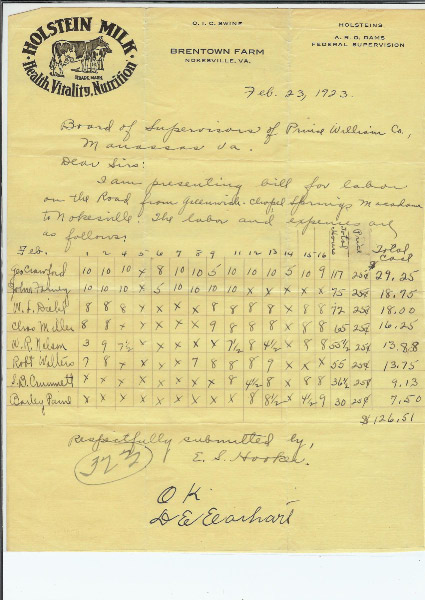 HOLSTEIN MILK
TRADE MARK
Health, Vitality, Nutrition
O. I. C. SWINE
BRENTOWN FARM
NOKESVILLE, VA.
HOLSTEINS
A. R. O. DAMS
FEDERAL SUPERVISION
Feb. 23, 1923.
Board of Supervisors of Prince William Co.,
Manassas Va.
Dear Sirs:
I am presenting bill for labor
on the Road from Greenwich-Chapel Springs Macadam
to Nokesville. The labor and expenses are
as follows:
Feb. 1 2 3 4 5 6 7 8 9 11 12 13 14 15 16 Total Hours Price Total Cost
Geo Crawford 10 10 10 x 8 10 10 10 5 10 10 10 5 10 9 117 25¢ $29.25
10 10 10 x 5 10 10 10 x x x x x x 75 25¢ 18.75
8 8 8 x x x x 8 8 8 8 x 8 8 72 25¢ 18.00
Chas Miller 8 8 x x x x x 9 8 8 8 8 x 8 8 65 25¢ 16.25
W. R. Nelson 3 9 7½ x x x x x x 7½ 8 4½ x 8 8 55½ 25¢ 13.88
Robt Walters 7 8 x x x x 7 8 8 8 9 x x x 55 25¢ 13.75
x x x x x x x x x 8 4½ 8 x 8 8 36½ 25¢ 9.13
Barley x x x x x x x x x x 8 8½ x 4½ 9 30 25¢ 7.50
$126.51
respectfully submitted by,
E. S. Hooker.
O K
D E Earhart